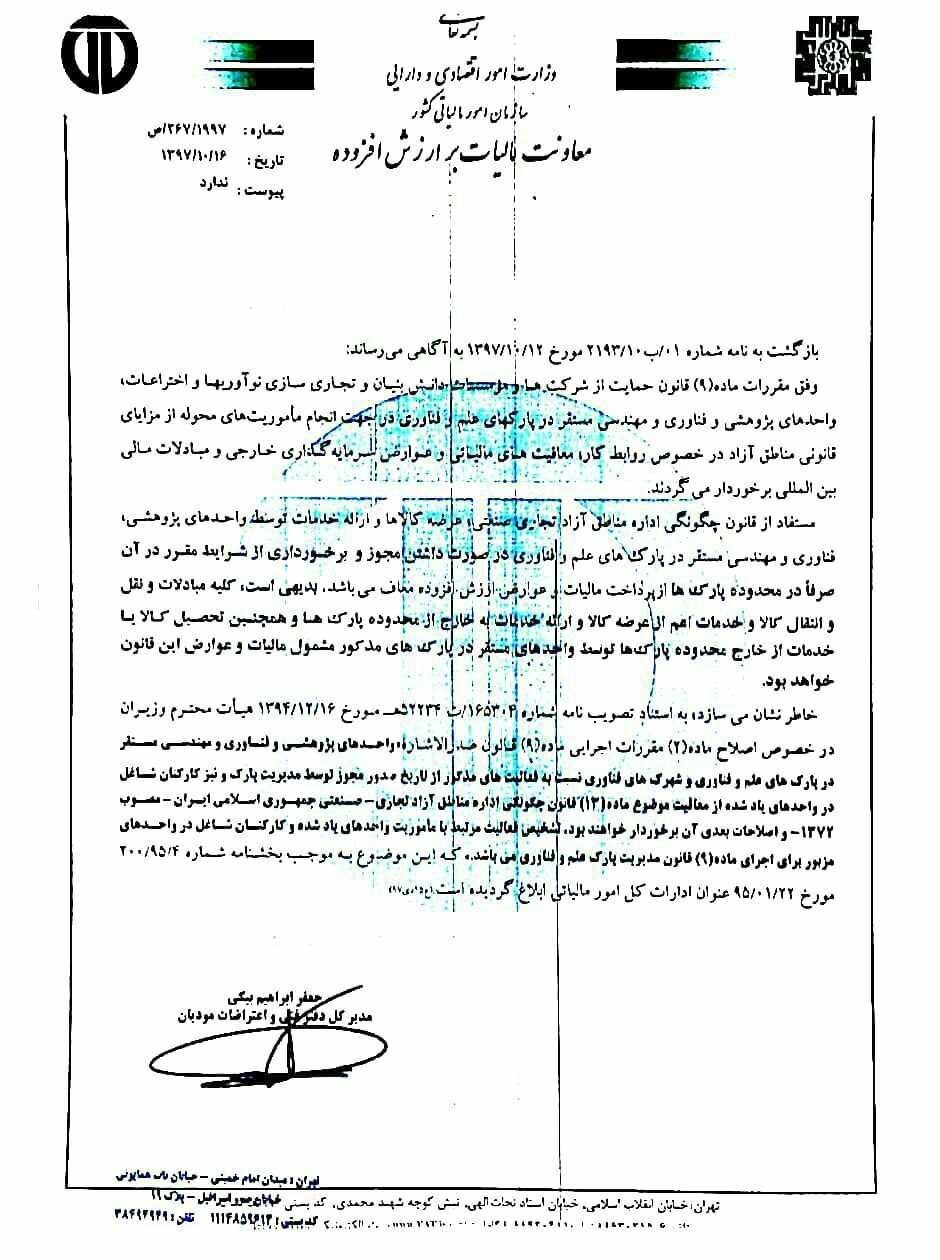 بسمه تعالی
وزارت امور اقتصادی و دارایی
سازمان امور مالیاتی کشور
معاونت مالیات بر ارزش افزوده
شماره: ۲۶۷/۱۹۹۷/ص
تاریخ: ۱۳۹۷/۱۰/۱۶
پیوست: ندارد
بازگشت به نامه شماره ۰۱/ب/۲۱۹۳/۱۰ مورخ ۱۳۹۷/۱۰/۱۲ به آگاهی می‌رساند:
وفق مقررات ماده(۹) قانون حمایت از شرکت ها و مؤسسات دانش بنیان و تجاری سازی نوآوریها و اختراعات،
واحدهای پژوهشی و فناوری و مهندسی مستقر در پارکهای علم و فناوری در جهت انجام مأموریت‌های محوله از مزایای
قانونی مناطق آزاد در خصوص روابط کار، معافیت های مالیاتی و عوارض سرمایه گذاری خارجی و مبادلات مالی
بین المللی برخوردار می گردند.
مستفاد از قانون چگونگی اداره مناطق آزاد تجاری صنعتی، عرضه کالاها و ارائه خدمات توسط واحدهای پژوهشی،
فناوری و مهندسی مستقر در پارک های علم و فناوری در صورت داشتن مجوز و برخورداری از شرایط مقرر در آن
صرفاً در محدوده پارک ها از پرداخت مالیات و عوارض ارزش افزوده معاف می باشد. بدیهی است، کلیه مبادلات و نقل
و انتقال کالا و خدمات اعم از عرضه کالا و ارائه خدمات به خارج از محدوده پارک ها و همچنین تحصیل کالا یا
خدمات از خارج محدوده پارک‌ها توسط واحدهای مستقر در پارک های مذکور مشمول مالیات و عوارض این قانون
خواهد بود.
خاطر نشان می سازد؛ به استناد تصویب نامه شماره ۱۶۵۳۰۴/ت ۵۲۲۳۴هـ مورخ ۱۳۹۴/۱۲/۱۶ هیأت محترم وزیران
در خصوص اصلاح ماده(۲) مقررات اجرایی ماده(۹) قانون صدرالاشاره، واحدهای پژوهشی و فناوری و مهندسی مستقر
در پارک های علم و فناوری و شهرک های فناوری نسبت به فعالیت های مذکور از تاریخ صدور مجوز توسط مدیریت پارک و نیز کارکنان شاغل
در واحدهای یاد شده از معافیت موضوع ماده (۱۳) قانون چگونگی اداره مناطق آزاد تجاری - صنعتی جمهوری اسلامی ایران - مصوب
۱۳۷۲- و اصلاحات بعدی آن برخوردار خواهند بود. تشخیص فعالیت مرتبط با مأموریت واحدهای یاد شده و کارکنان شاغل در واحدهای
مزبور برای اجرای ماده(۹) قانون مدیریت پارک علم و فناوری می باشد.» که این موضوع به موجب بخشنامه شماره ۲۰۰/۹۵/۴
مورخ ۹۵/۰۱/۲۲ عنوان ادارات کل امور مالیاتی ابلاغ گردیده است
جعفر ابراهیم بیکی
مدیر کل دفتر فنی و اعتراضات مودیان
تهران: میدان امام خمینی - خیابان باب همایونی
خیابان صور اسرافیل - پلاک ۱۹
تهران: خیابان انقلاب اسلامی، خیابان استاد نجات الهی، نبش کوچه شهید محمدی، کد پستی
تلفن: ۳۸۴۹۲۹۲۹